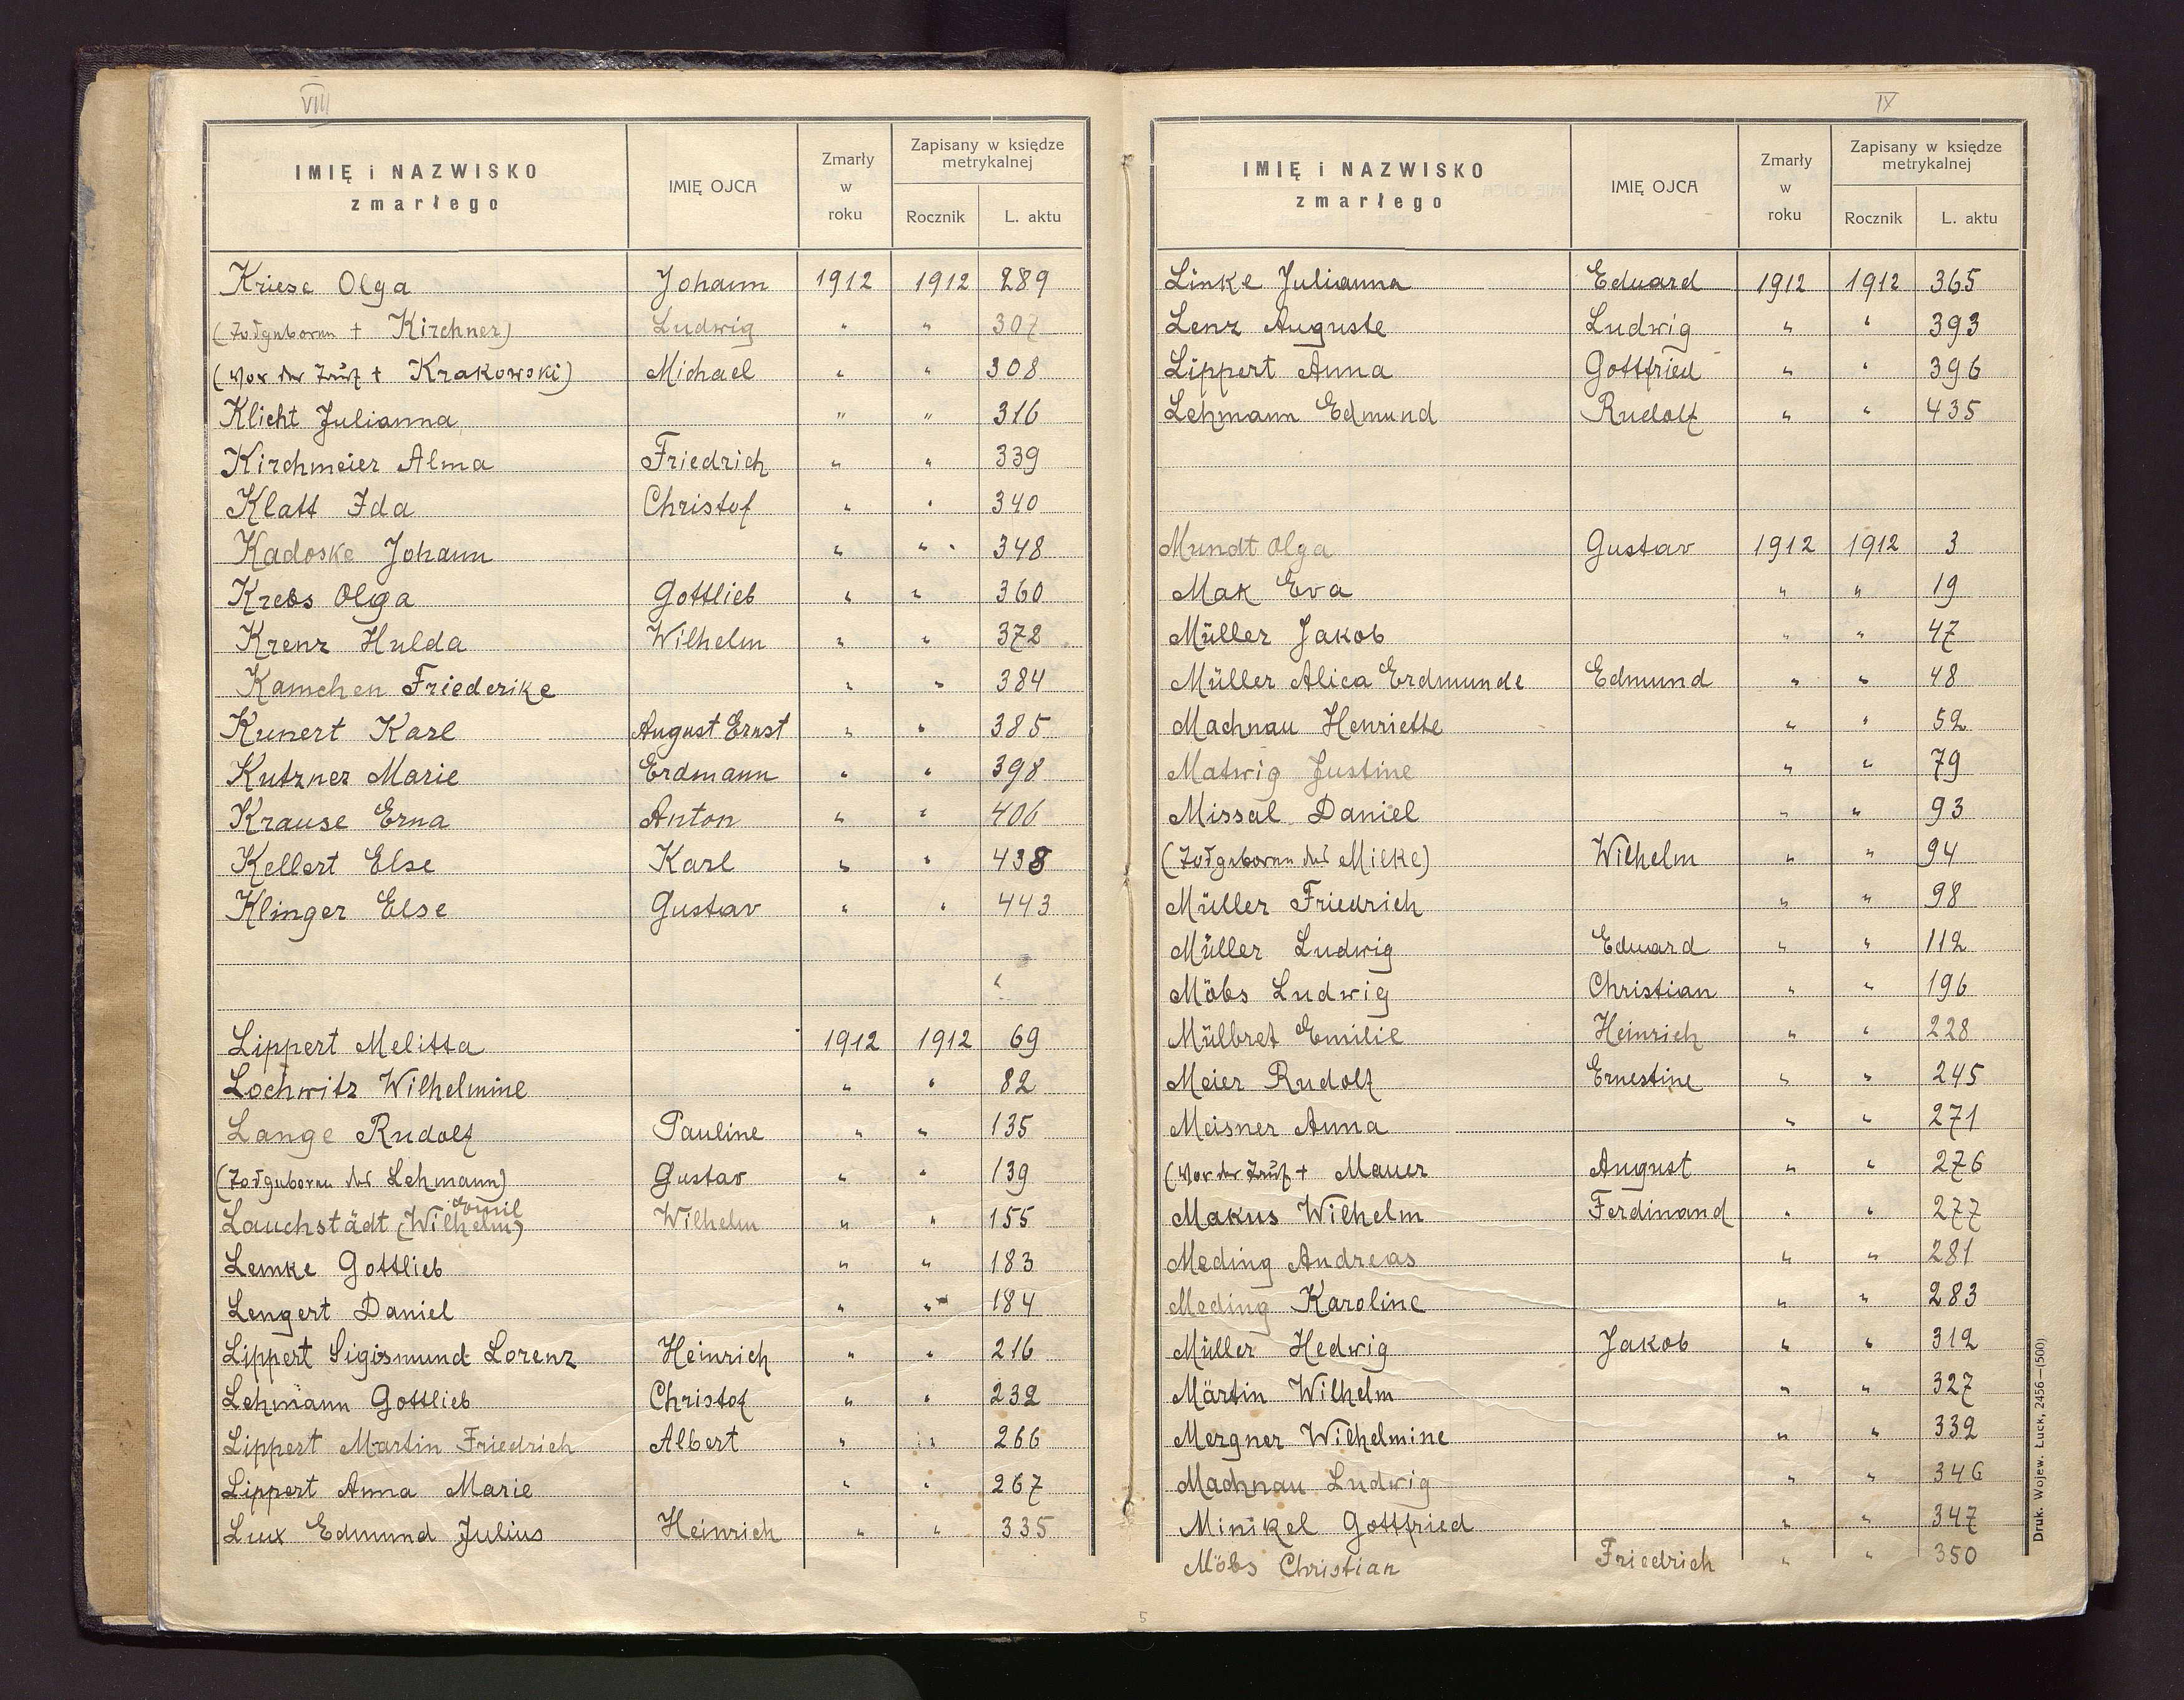 VIII
IMIĘ i NAZWISKO zmarłego | IMIĘ OJCA | Zmarły w roku | Zapisany w księdze metrykalnej
Rocznik | L. aktu
Kriese Olga | Johann | 1912 | 1912 | 289
(Totgeboren + Kirchner) | Ludwig | " | " | 307
(Vor der Taufe + Krakowski) | Michael | " | " | 308
Klicht Julianna | | " | " | 316
Kirchmeier Alma | Friedrich | " | " | 339
Klatt Ida | Christof | " | " | 340
Kadoske Johann | | " | " | 348
Krebs Olga | Gottlieb | " | " | 360
Krenz Hulda | Wilhelm | " | " | 372
Kamchen Friederike | | " | " | 384
Kunert Karl | August Ernst | " | " | 385
Kutzner Marie | Erdmann | " | " | 398
Krause Erna | Anton | " | " | 406
Kellert Else | Karl | " | " | 438
Klinger Else | Gustav | " | " | 443
Lippert Melitta | | 1912 | 1912 | 69
Lochwitz Wilhelmine | | " | " | 82
Lange Rudolf | Pauline | " | " | 135
(Totgeboren des Lehmann) | Gustav | " | " | 139
Emil
Lauchstädt (Wilhelm) | Wilhelm | " | " | 155
Lemke Gottlieb | | " | " | 183
Lengert Daniel | | " | " | 184
Lippert Sigismund Lorenz | Heinrich | " | " | 216
Lehmann Gottlieb | Christof | " | " | 232
Lippert Martin Friedrich | Albert | " | " | 266
Lippert Anna Marie | | " | " | 267
Lux Edmund Julius | Heinrich | " | " | 335
IX
IMIĘ i NAZWISKO zmarłego | IMIĘ OJCA | Zmarły w roku | Zapisany w księdze metrykalnej
Rocznik | L. aktu
Linke Julianna | Eduard | 1912 | 1912 | 365
Lenz Auguste | Ludwig | " | " | 393
Lippert Anna | Gottfried | " | " | 396
Lehmann Edmund | Rudolf | " | " | 435
Mundt Olga | Gustav | 1912 | 1912 | 3
Mak Eva | | " | " | 19
Müller Jakob | | " | " | 47
Müller Alica Erdmunde | Edmund | " | " | 48
Machnau Henriette | | " | " | 52
Matwig Justine | | " | " | 79
Missal Daniel | | " | " | 93
(Totgeboren des Milke) | Wilhelm | " | " | 94
Müller Friedrich | | " | " | 98
Müller Ludwig | Eduard | " | " | 112
Möbs Ludwig | Christian | " | " | 196
Mülbret Emilie | Heinrich | " | " | 228
Meier Rudolf | Ernestine | " | " | 245
Meisner Anna | | " | " | 271
(Vor der Taufe + Mauer | August | " | " | 276
Makus Wilhelm | Ferdinand | " | " | 277
Meding Andreas | | " | " | 281
Meding Karoline | | " | " | 283
Müller Hedwig | Jakob | " | " | 312
Märtin Wilhelm | | " | " | 327
Mergner Wilhelmine | | " | " | 332
Machnau Ludwig | | " | " | 346
Minikel Gottfried | | " | " | 347
Möbs Christian | Friedrich | " | " | 350
Druk. Wojew. Łuck, 2456—(500)
5